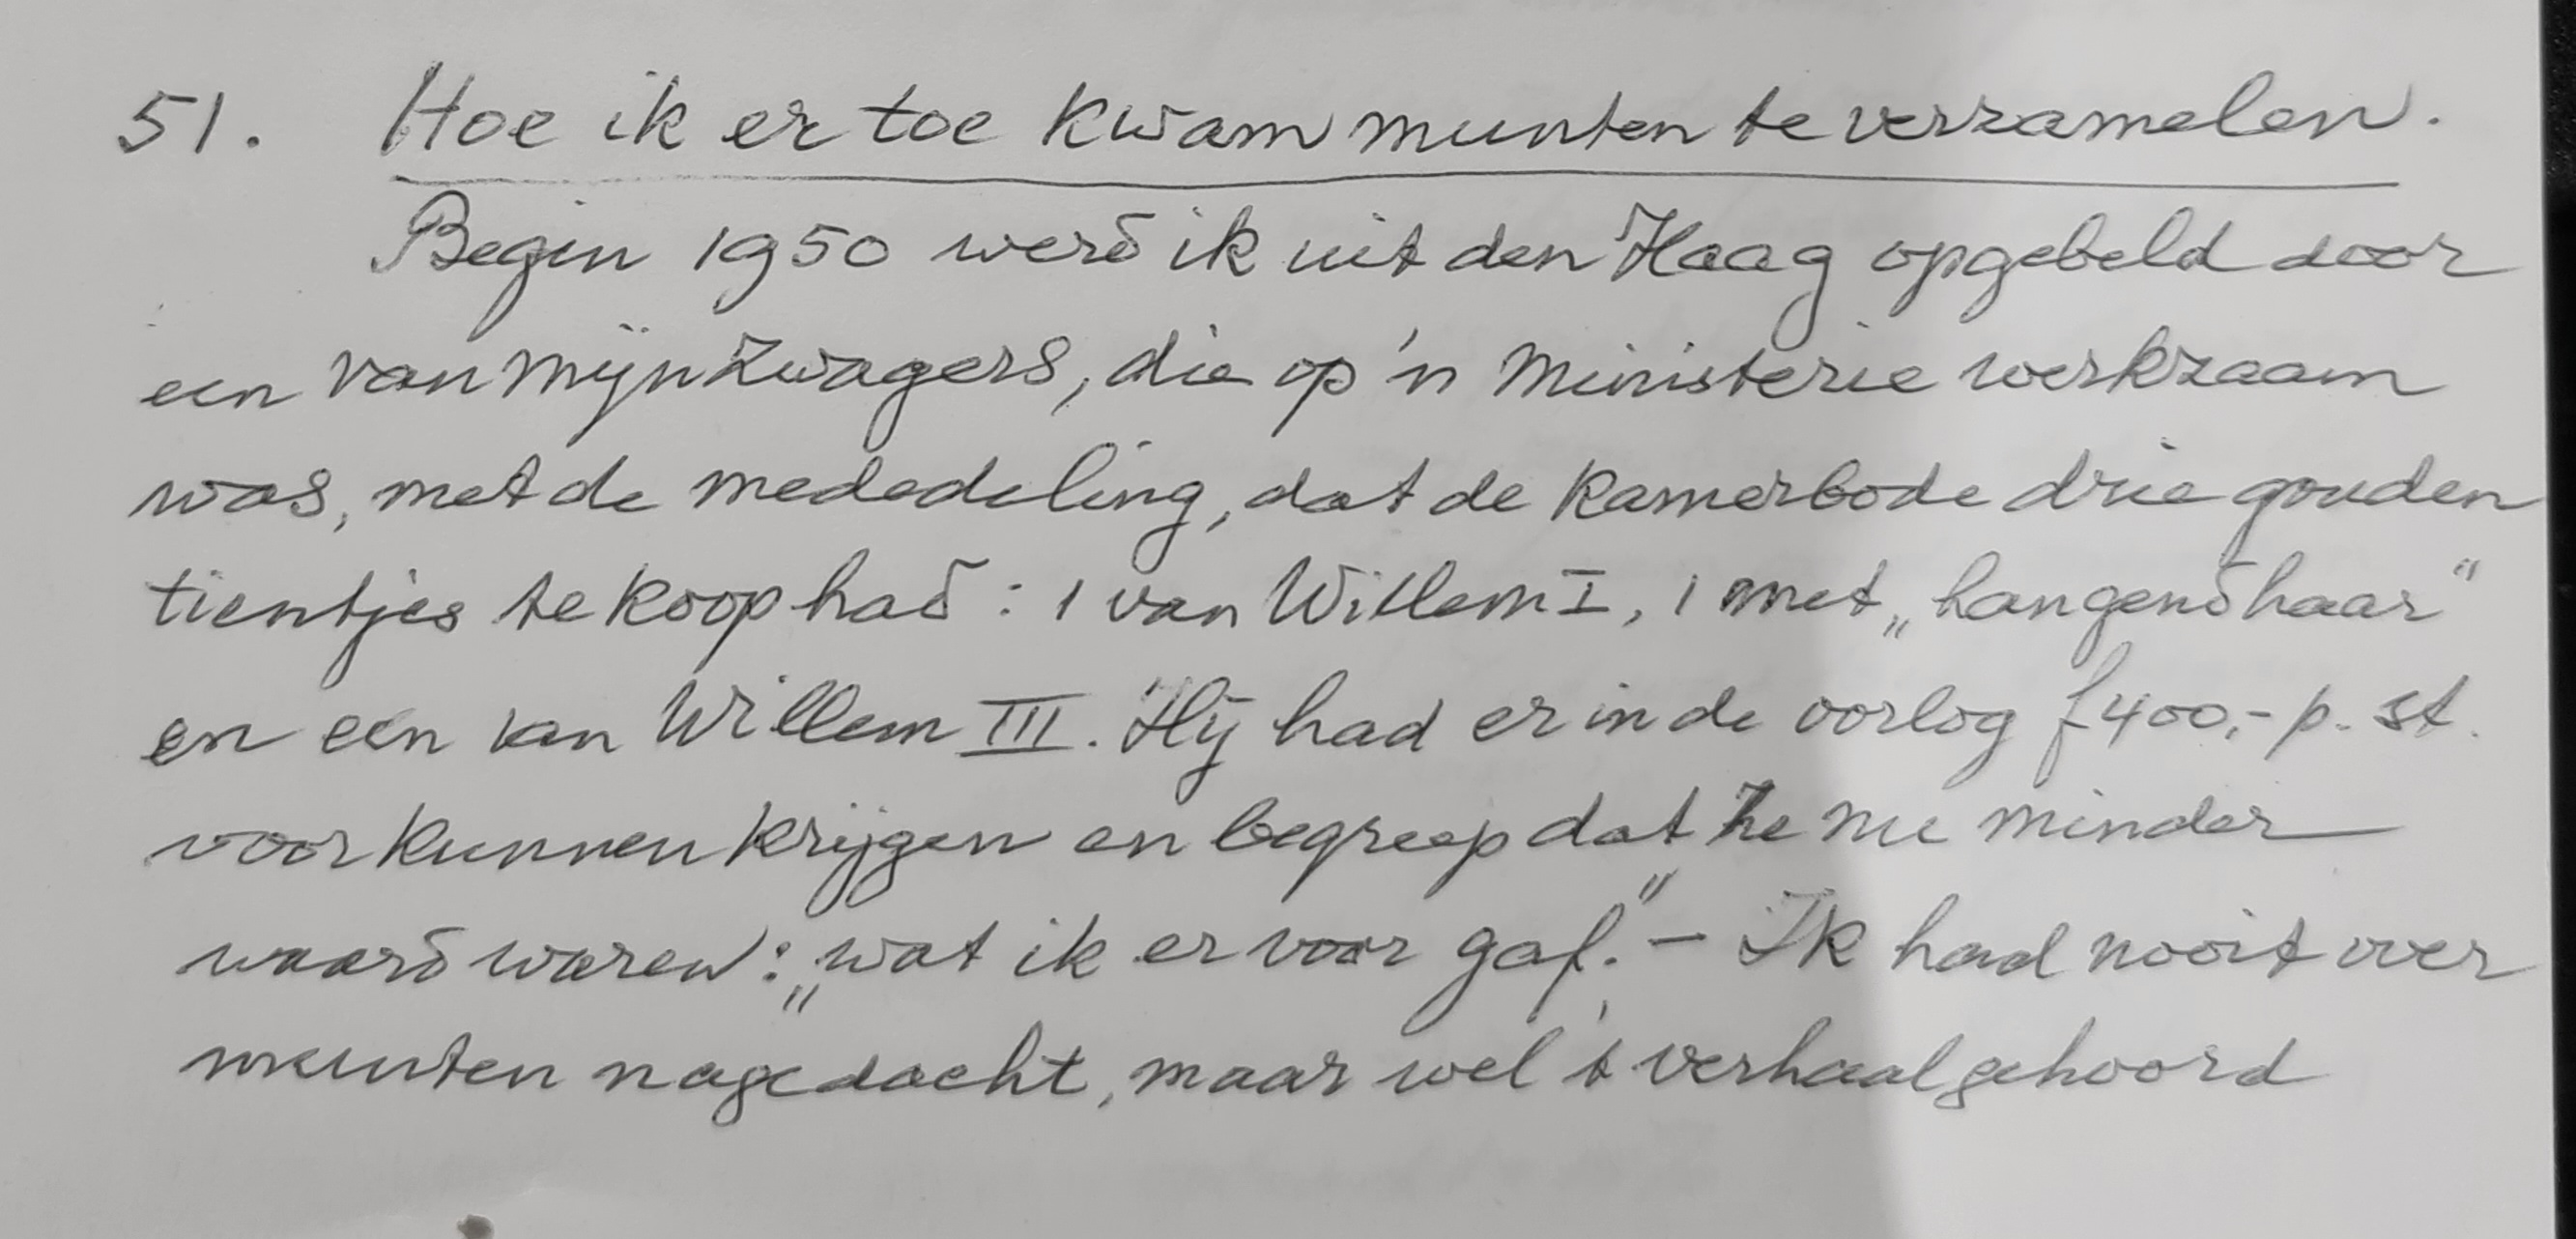 51. Hoe ik er toe kwam munten te verzamelen.
Begin 1950 werd ik uit den Haag opgebeld door
een van mijn zwagers, die op 'n ministerie werkzaam
was, met de mededeling, dat de kamerbode drie gouden
tientjes te koop had: 1 van Willem I, 1 met „hangend haar"
en een van Willem III. Hij had er in de oorlog f 400,- p. st.
voor kunnen krijgen en begreep dat ze nu minder
waard waren: „wat ik er voor gaf." - Ik had nooit over
munten nagedacht, maar wel 't verhaal gehoord